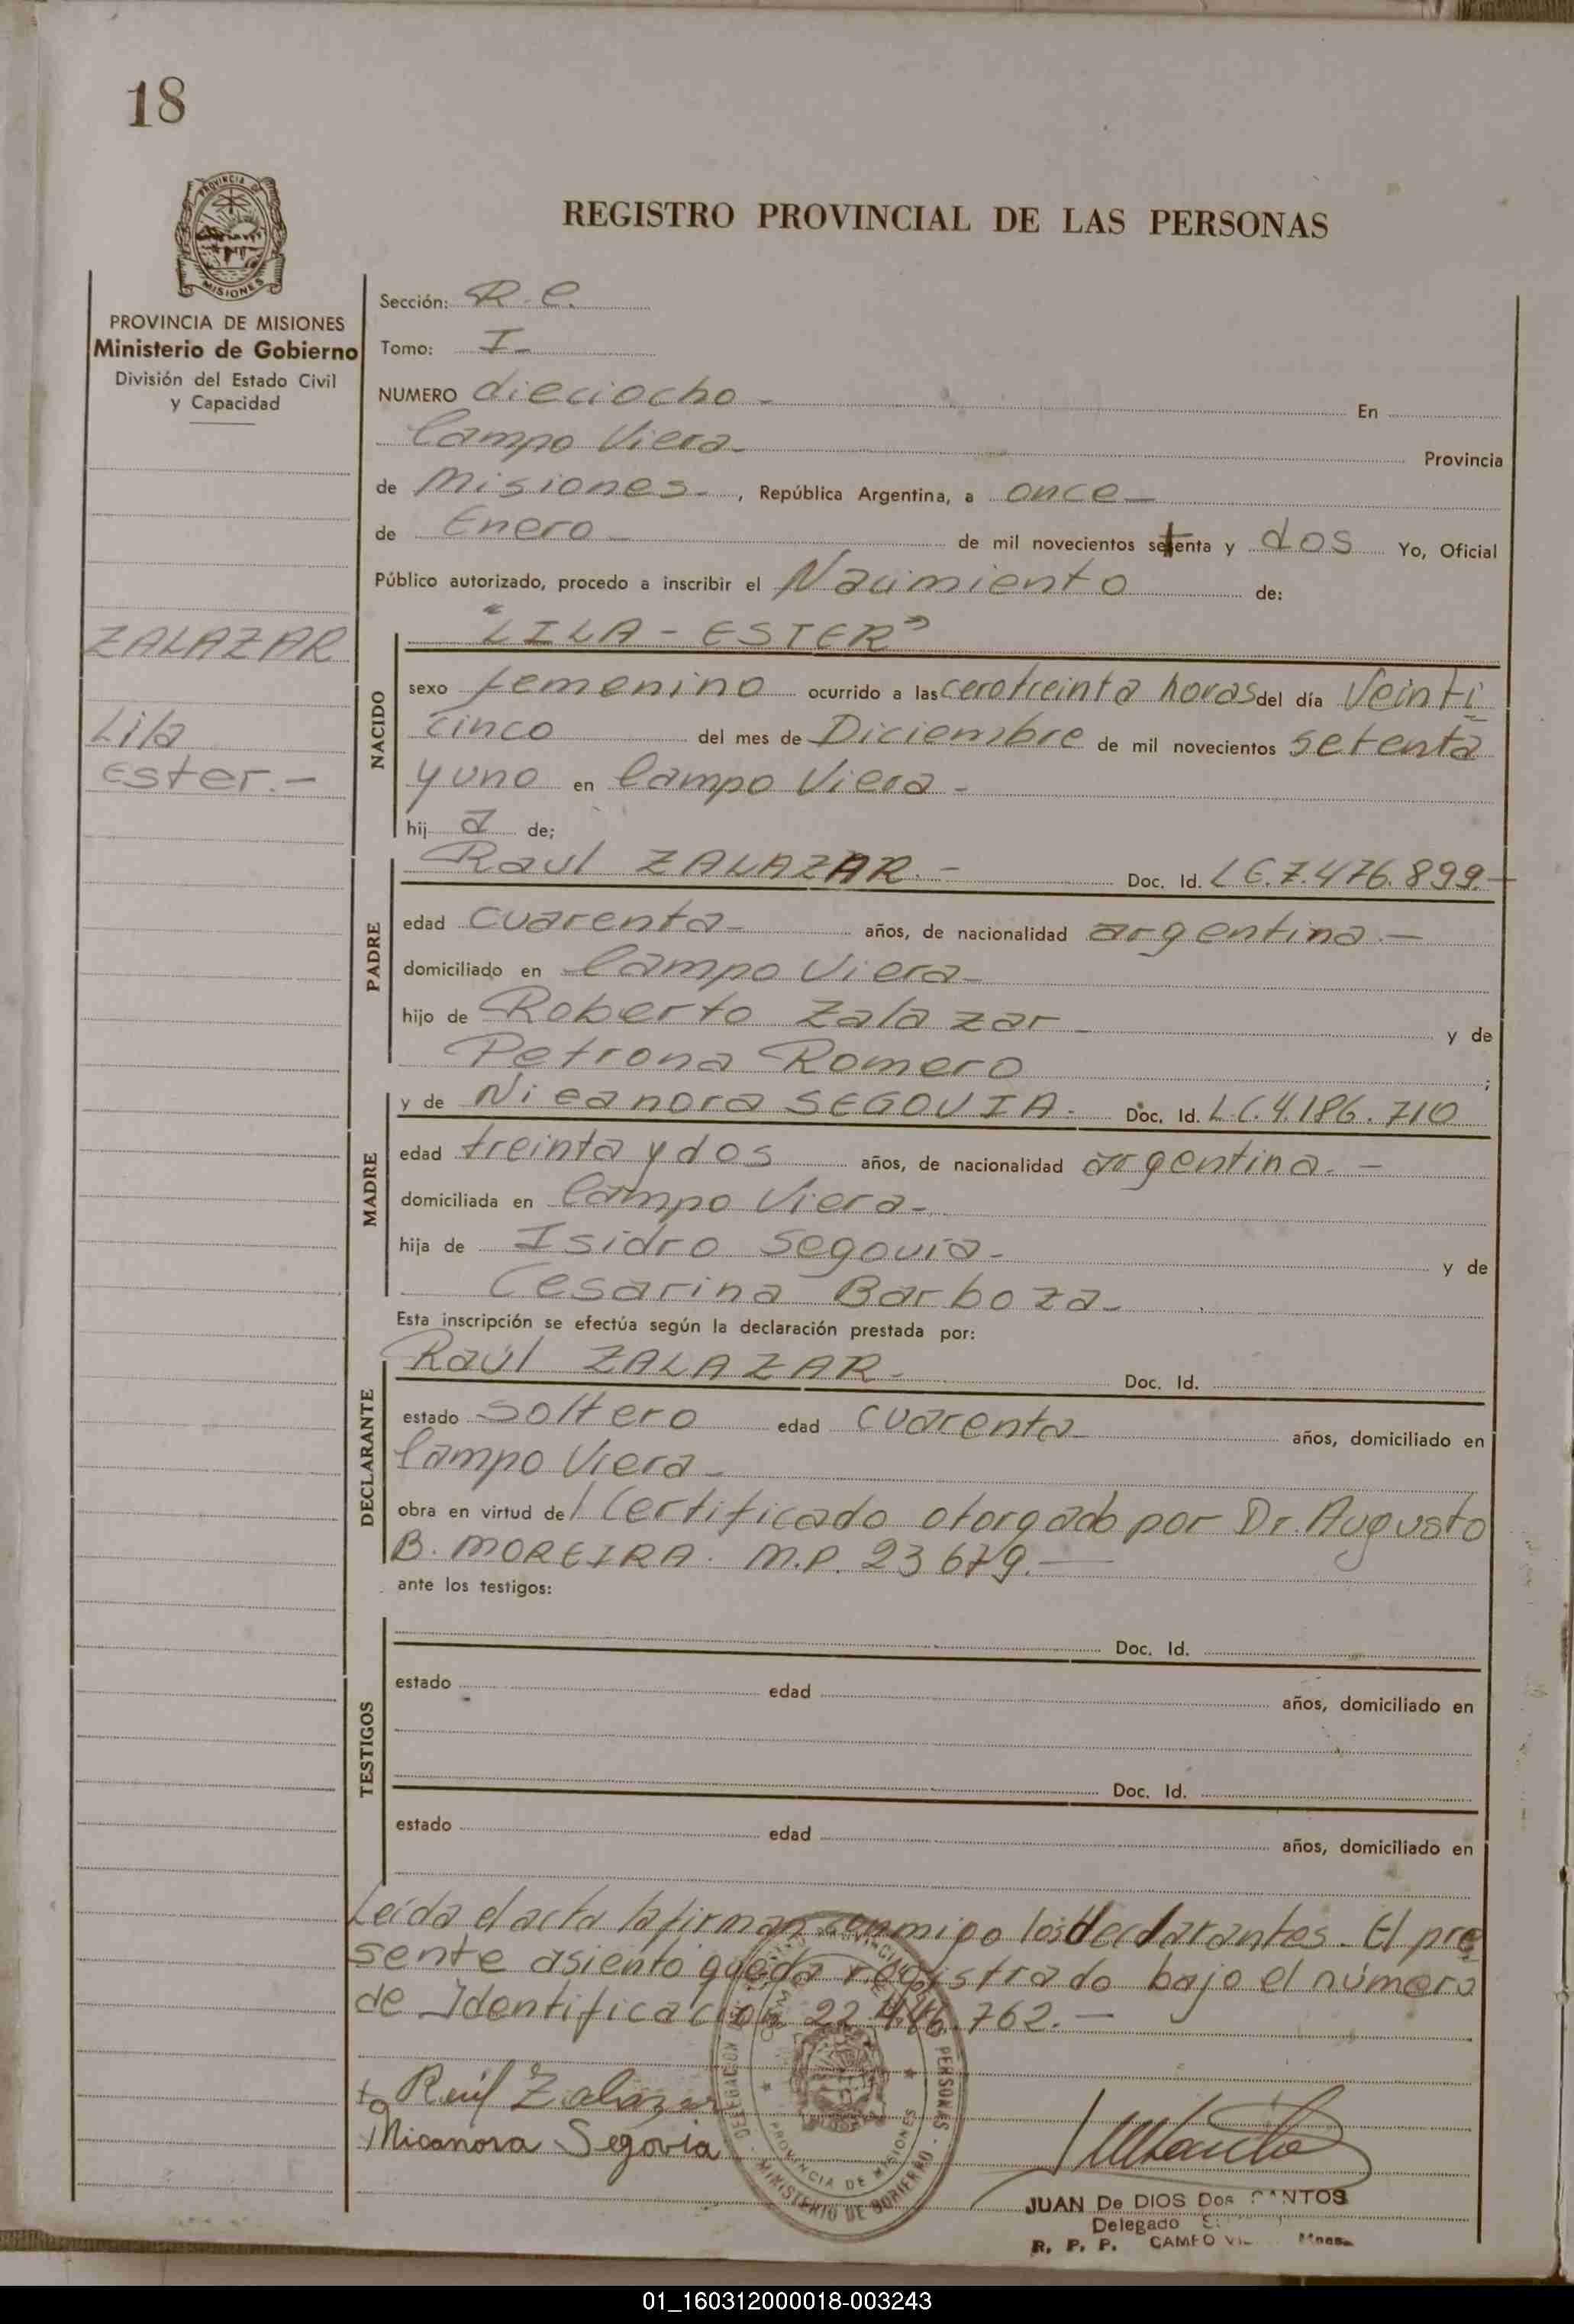 18
PROVINCIA DE
MISIONES
REGISTRO PROVINCIAL DE LAS PERSONAS
PROVINCIA DE MISIONES
Ministerio de Gobierno
División del Estado Civil
y Capacidad
ZALAZAR
Lila
Ester.-
Sección: R.C.
Tomo: I-
NUMERO dieciocho - En
Campo Viera- Provincia
de Misiones-, República Argentina, a once-
de Enero- de mil novecientos setenta y dos Yo, Oficial
Público autorizado, procedo a inscribir el Nacimiento de:
NACIDO
"LILA - ESTER"
sexo femenino ocurrido a las cerotreinta horas del día Veinti
cinco del mes de Diciembre de mil novecientos setenta
y uno en Campo Viera-
hij a de;
PADRE
Raul ZALAZAR.- Doc. Id. L.E.7.476.899.-
edad cuarenta- años, de nacionalidad argentina.-
domiciliado en Campo Viera-
hijo de Roberto Zalazar- y de
Petrona Romero ;
MADRE
y de Nicanora SEGOVIA. Doc. Id. L.C.4.186.710
edad treinta y dos años, de nacionalidad argentina.-
domiciliada en Campo Viera-
hija de Isidro Segovia- y de
Cesarina Barboza-
Esta inscripción se efectúa según la declaración prestada por:
DECLARANTE
Raúl ZALAZAR- Doc. Id.
estado soltero edad cuarenta- años, domiciliado en
Campo Viera-
obra en virtud del Certificado otorgado por Dr. Augusto
B. MOREIRA. M.P. 23679.-
ante los testigos:
TESTIGOS
Doc. Id.
estado edad años, domiciliado en
Doc. Id.
estado edad años, domiciliado en
Leída el acta la firman conmigo los declarantes. El pre
sente asiento queda registrado bajo el número
de Identificación 22.446.762.-
Raúl Zalazar
Nicanora Segovia
DELEGACION PERSONAS
PROVINCIA DE MISIONES
MINISTERIO DE GOBIERNO
JUAN De DIOS Dos SANTOS
Delegado
R. P. P. CAMPO Mnes.
01_160312000018-003243